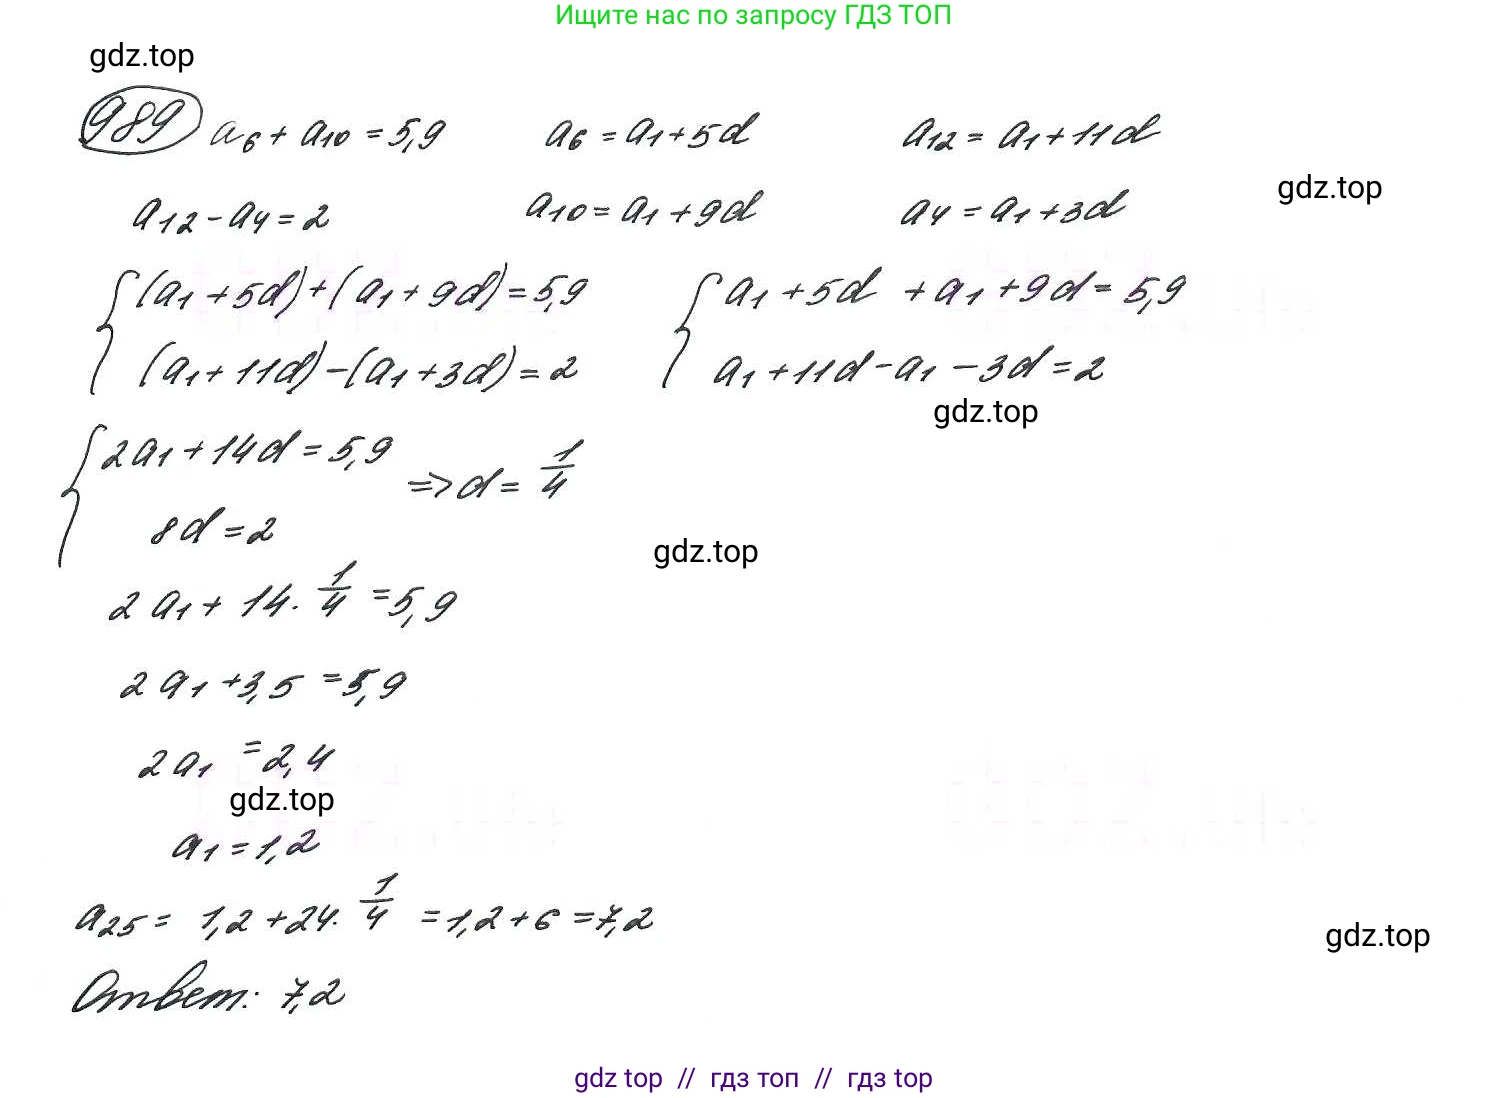 Ищите нас по запросу ГДЗ ТОП
gdz.top
989 a₆ + a₁₀ = 5,9 a₆ = a₁ + 5d a₁₂ = a₁ + 11d
gdz.top
a₁₂ - a₄ = 2 a₁₀ = a₁ + 9d a₄ = a₁ + 3d
{ (a₁ + 5d) + (a₁ + 9d) = 5,9 { a₁ + 5d + a₁ + 9d = 5,9
(a₁ + 11d) - (a₁ + 3d) = 2 a₁ + 11d - a₁ - 3d = 2
gdz.top
{ 2a₁ + 14d = 5,9 ⇒ d = 1/4
8d = 2
gdz.top
2a₁ + 14 · 1/4 = 5,9
2a₁ + 3,5 = 5,9
2a₁ = 2,4
gdz.top
a₁ = 1,2
a₂₅ = 1,2 + 24 · 1/4 = 1,2 + 6 = 7,2
gdz.top
Ответ: 7,2
gdz top // гдз топ // гдз top